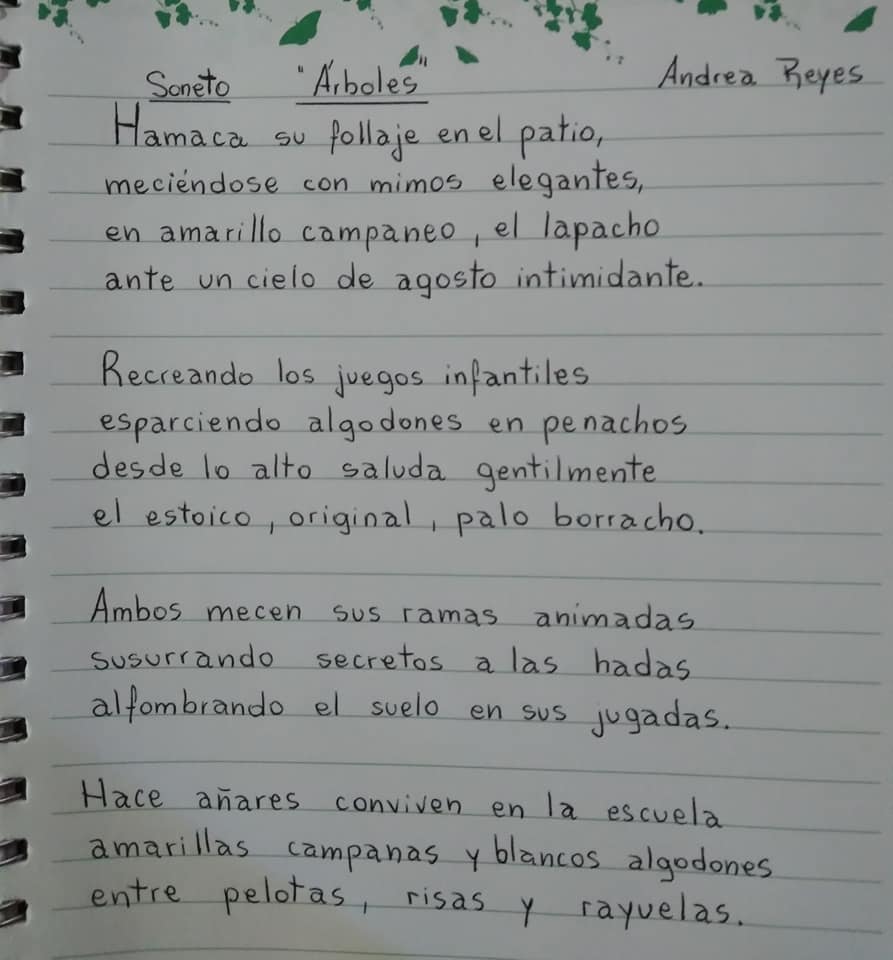 Soneto "Árboles" Andrea Reyes
Hamaca su follaje en el patio,
meciéndose con mimos elegantes,
en amarillo campaneo, el lapacho
ante un cielo de agosto intimidante.
Recreando los juegos infantiles
esparciendo algodones en penachos
desde lo alto saluda gentilmente
el estoico, original, palo borracho.
Ambos mecen sus ramas animadas
susurrando secretos a las hadas
alfombrando el suelo en sus jugadas.
Hace añares conviven en la escuela
amarillas campanas y blancos algodones
entre pelotas, risas y rayuelas.